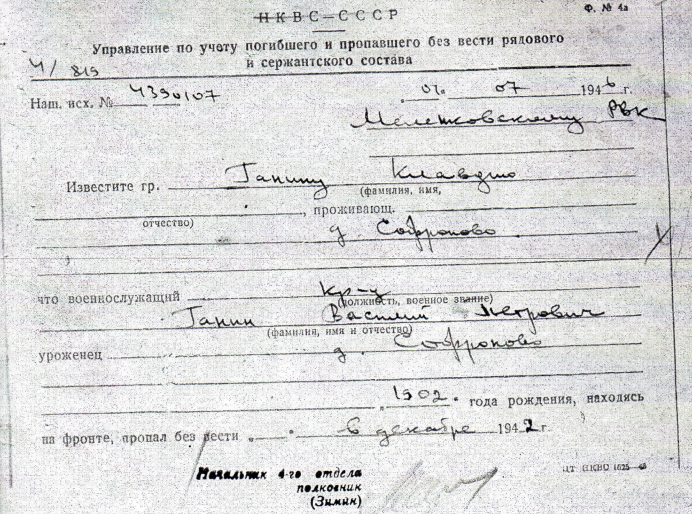 НКВС–СССР
Ф. № 4а
Управление по учету погибшего и пропавшего без вести рядового
и сержантского состава
4/819
Наш. исх. № 4390107
"01." 07 1946 г.
РВК
Известите гр. Ганину Клавдию
(фамилия, имя,
отчество) , проживающ.
д. Софроново
что военнослужащий кр-ц
(должность, военное звание)
Ганин Василий Петрович
(фамилия, имя и отчество)
уроженец д. Софроново
" 1902. года рождения, находясь
на фронте, пропал без вести „—" в декабре 1942 г.
Начальник 4-го отдела
полковник
(Зимин)